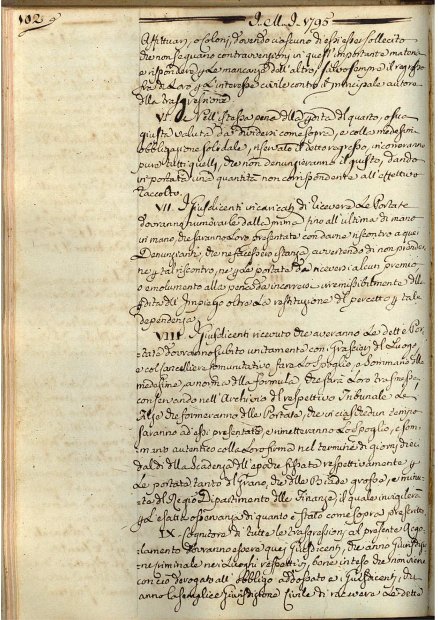 102 I.M.I. 1795
Affittuari, o Coloni, dovendo ciascuno di essi esser sollecito
che non seguano contravenzioni in quest'importante materia
e rispondere p le mancanze dell'altro, salvo sempre il regresso
fra di Loro p l'interesse civile contro il principale autore
dlla trasgressione
VI E nell'istessa pena dlla perdita del quarto, o sua
giusta valuta da dividersi come sopra, e colla medesima
obbligazione solidale, riservato il detto regresso, incorreranno
pure tutti quelli, che non denunzieranno il giusto, dando
in portata una quantità non corrispondente all'effettivo
raccolto.
VII I Giusdicenti incaricati di ricevere le Portate
dovranno numerarle dalla prima fino all'ultima di mano
in mano, che saranno Loro presentate con darne riscontro a quei
Denunzianti, che ne facessero istanza, avvertendo di non prender
ne p tal riscontro, ne p le portate da riceversi alcun premio
o emolumento alla pena da incorrersi irremissibilmente dlla
perdita dell'Impiego oltre la restituzione del percetto p tale
dependenza
VIII I Giusdicenti ricevute che averanno le dette Por-
tate dovranno subito unitamente con i Grascieri del Luogo,
e col Cancelliere Comunitativo fare lo Spoglio, o Sommario dlle
medesime, a norma dlla formula, che sarà Loro trasmessa
conservando nell'Archivio del respettivo Tribunale le
Filze, che formeranno dlle Portate, che in ciaschedun tempo
saranno ad essi presentate, e rimetteranno lo Spoglio, e Som-
mario autentico colla Loro firma nel termine di giorni dieci
dal dì dlla scadenza dll'epoche fissate respettivamente p
le portate tanto del Grano, che dlle Biade grosse, e minute
al Regio Dipartimento dlle Finanze, il quale invigilerà
p l'esatta osservanza di quanto è stato come sopra prescritto
IX Cognitori di tutte le trasgressioni al presente Rego-
lamento dovranno essere quei Giusdicenti, che anno Giurisdizio-
ne criminale nei Luoghi respettivi, bene inteso che non viene
con ciò derogato all'obbligo addossato ai Giusdicenti, che
anno la semplice Giurisdizione Civile di ricevere le dette